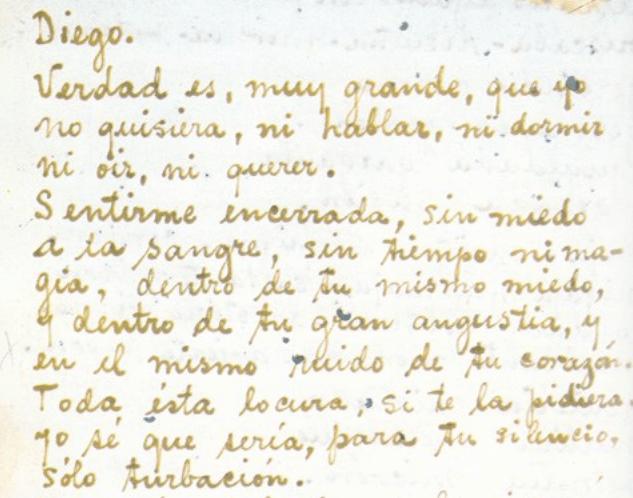 Diego.
Verdad es, muy grande, que yo
no quisiera, ni hablar, ni dormir
ni oir, ni querer.
Sentirme encerrada, sin miedo
a la sangre, sin tiempo ni ma-
gia, dentro de tu mismo miedo,
y dentro de tu gran angustia, y
en el mismo ruido de tu corazón.
Toda ésta locura, si te la pidiera
yo sé que sería, para tu silencio,
sólo turbación.